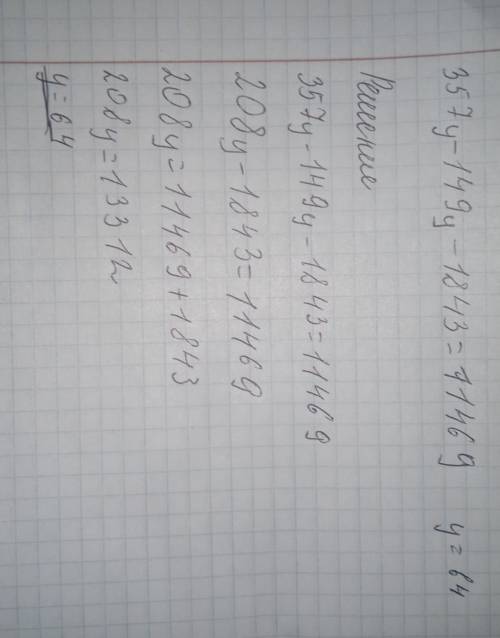 357y-149y-1843=11469 y=64
Решение
357y-149y-1843=11469
208y-1843=11469
208y=11469+1843
208y=13312
y=64